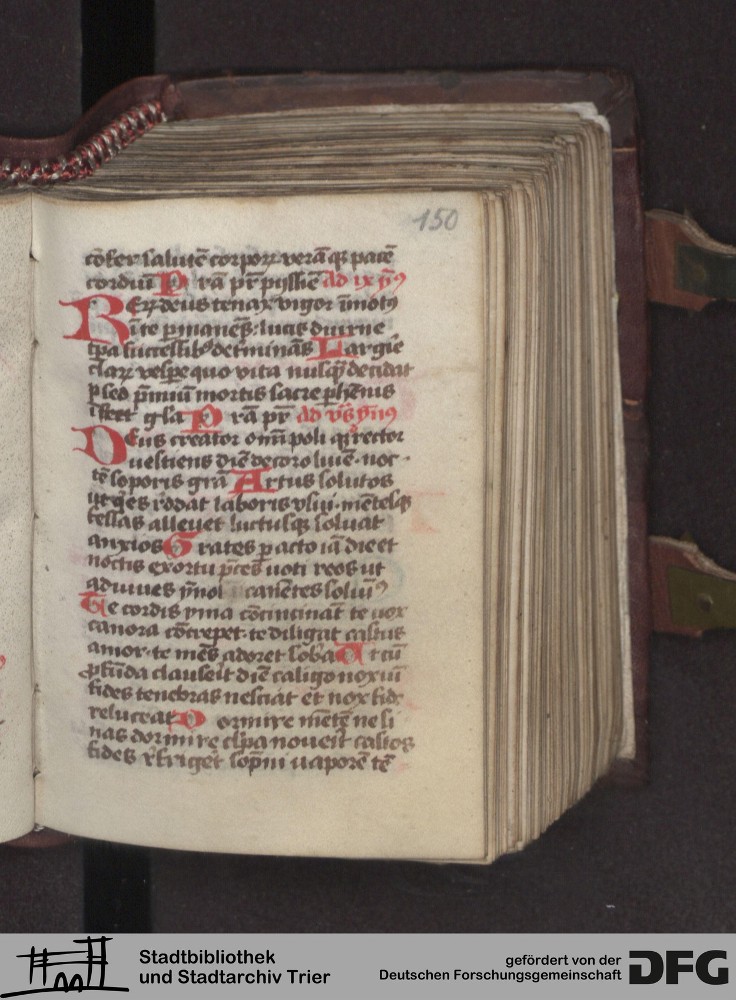 150
cōfer salutē corporꝝ verāqꝫ pacē
cordiū P rā pr̄ pijssīe Ad ix ẏ9
REꝝ deus tenax vigor īmot9
ī te ꝑmanēs· lucis diurne
tꝑa successibꝫ det̄minās Largīe
clarū vesꝑe quo vita nusqꝫ decidat
ꝑm̄iū mortis sacre ꝑhēnis
gl̄a P rā pr̄ ad vs̄
DEus creator om̄ poli qꝫ rector
vestiens diē decoro lumīe· noc
tē soporis grā Artus solutos
ut reddat laboris vsui· mētesqꝫ
fessas alleuet luctusqꝫ soluat
anxios Grates ꝑacto iā die et
noctis exortu p̄ces uoti reos ut
adiuues canētes soluim9
Te cordis yma cōcinināt te uox
canora cōcrepet· te diligat castus
amor· te mēs adoret sobria At cū
ꝓfūda clauserit diē caligo noxiū
fides tenebras nesciat et nox fide
reluceat Dormire mētē ne si
nas dormire culpa nouerit castos
fides refriget sopni uaporē tē
Stadtbibliothek
und Stadtarchiv Trier
gefördert von der
Deutschen Forschungsgemeinschaft
DFG